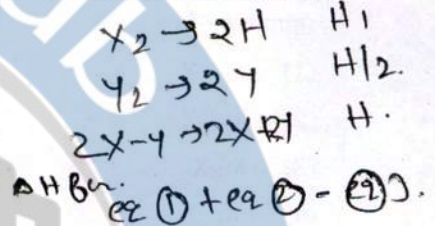 X₂ → 2H H1
Y₂ → 2Y H/2.
2X-Y → 2X+2Y H.
ΔH for.
eq ① + eq ② - eq ③.